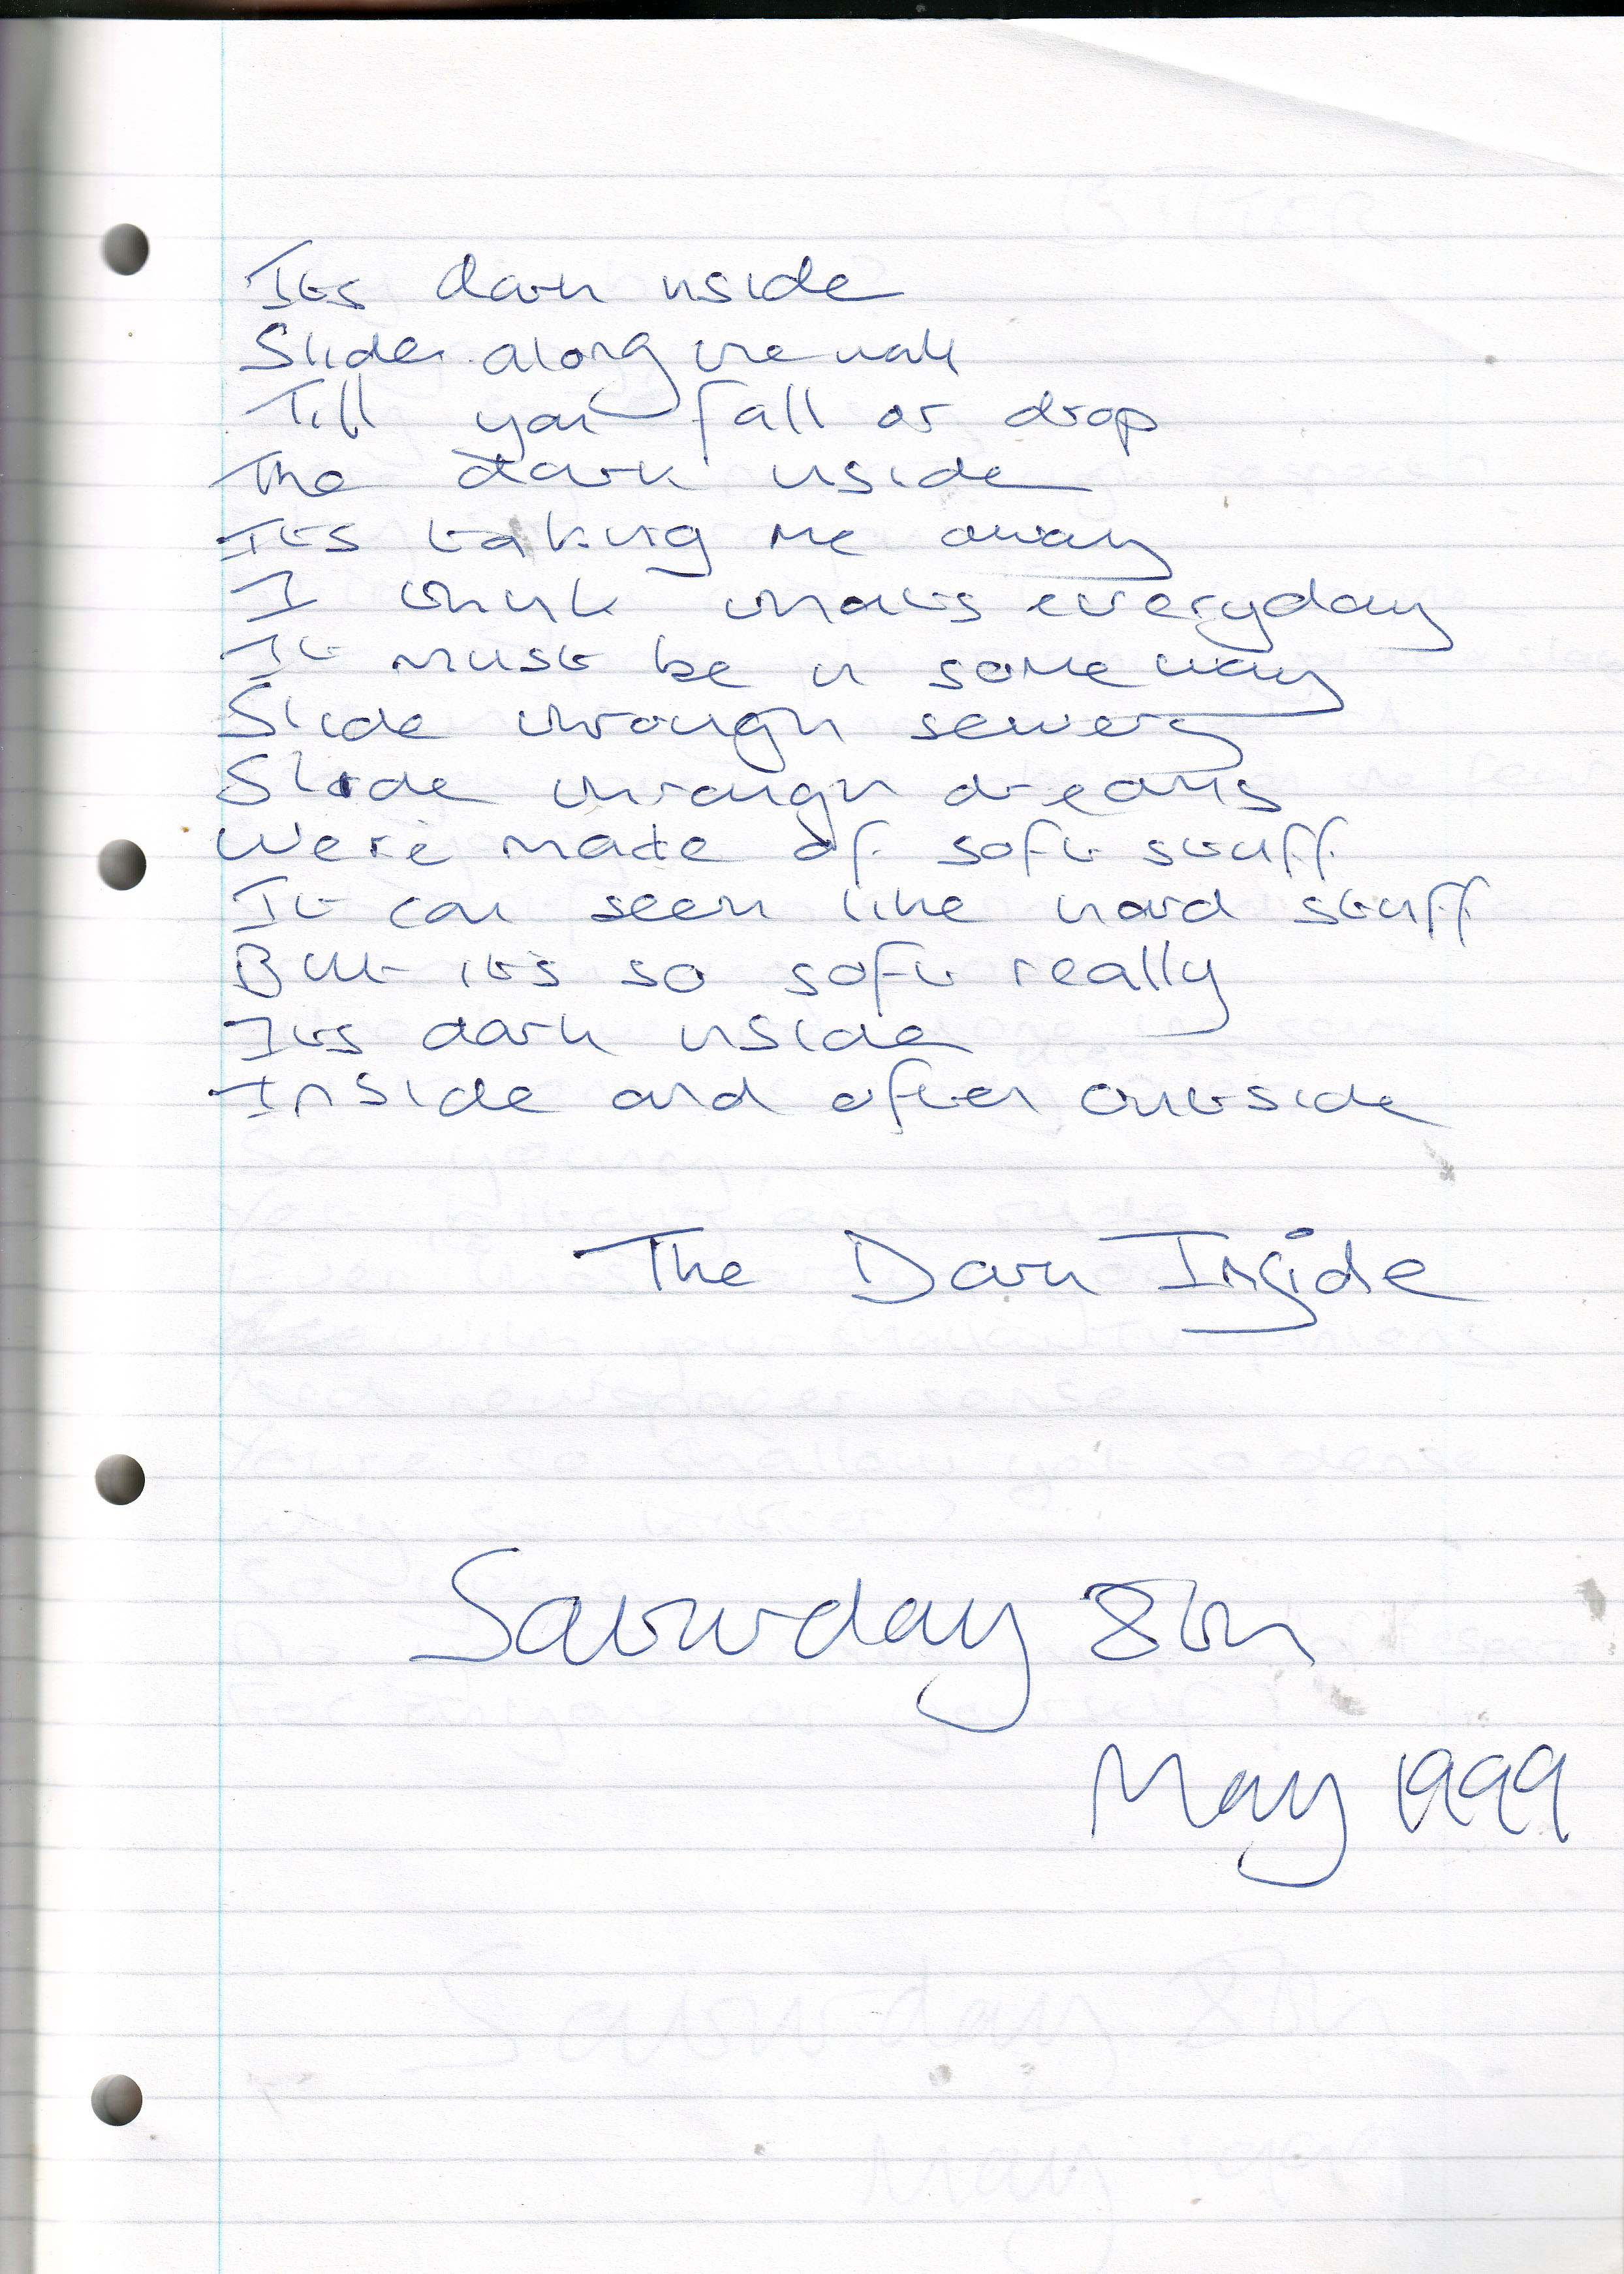 Its dark inside
Slide along the wall
Till you fall or drop
The dark inside
Its taking me away
I think thats everyday
It must be in some way
Slide through sewers
Slide through dreams
Were made of soft stuff
It can seem like hard stuff
But its so soft really
Its dark inside
Inside and often outside
The Dark Inside
Saturday 8th
May 1999